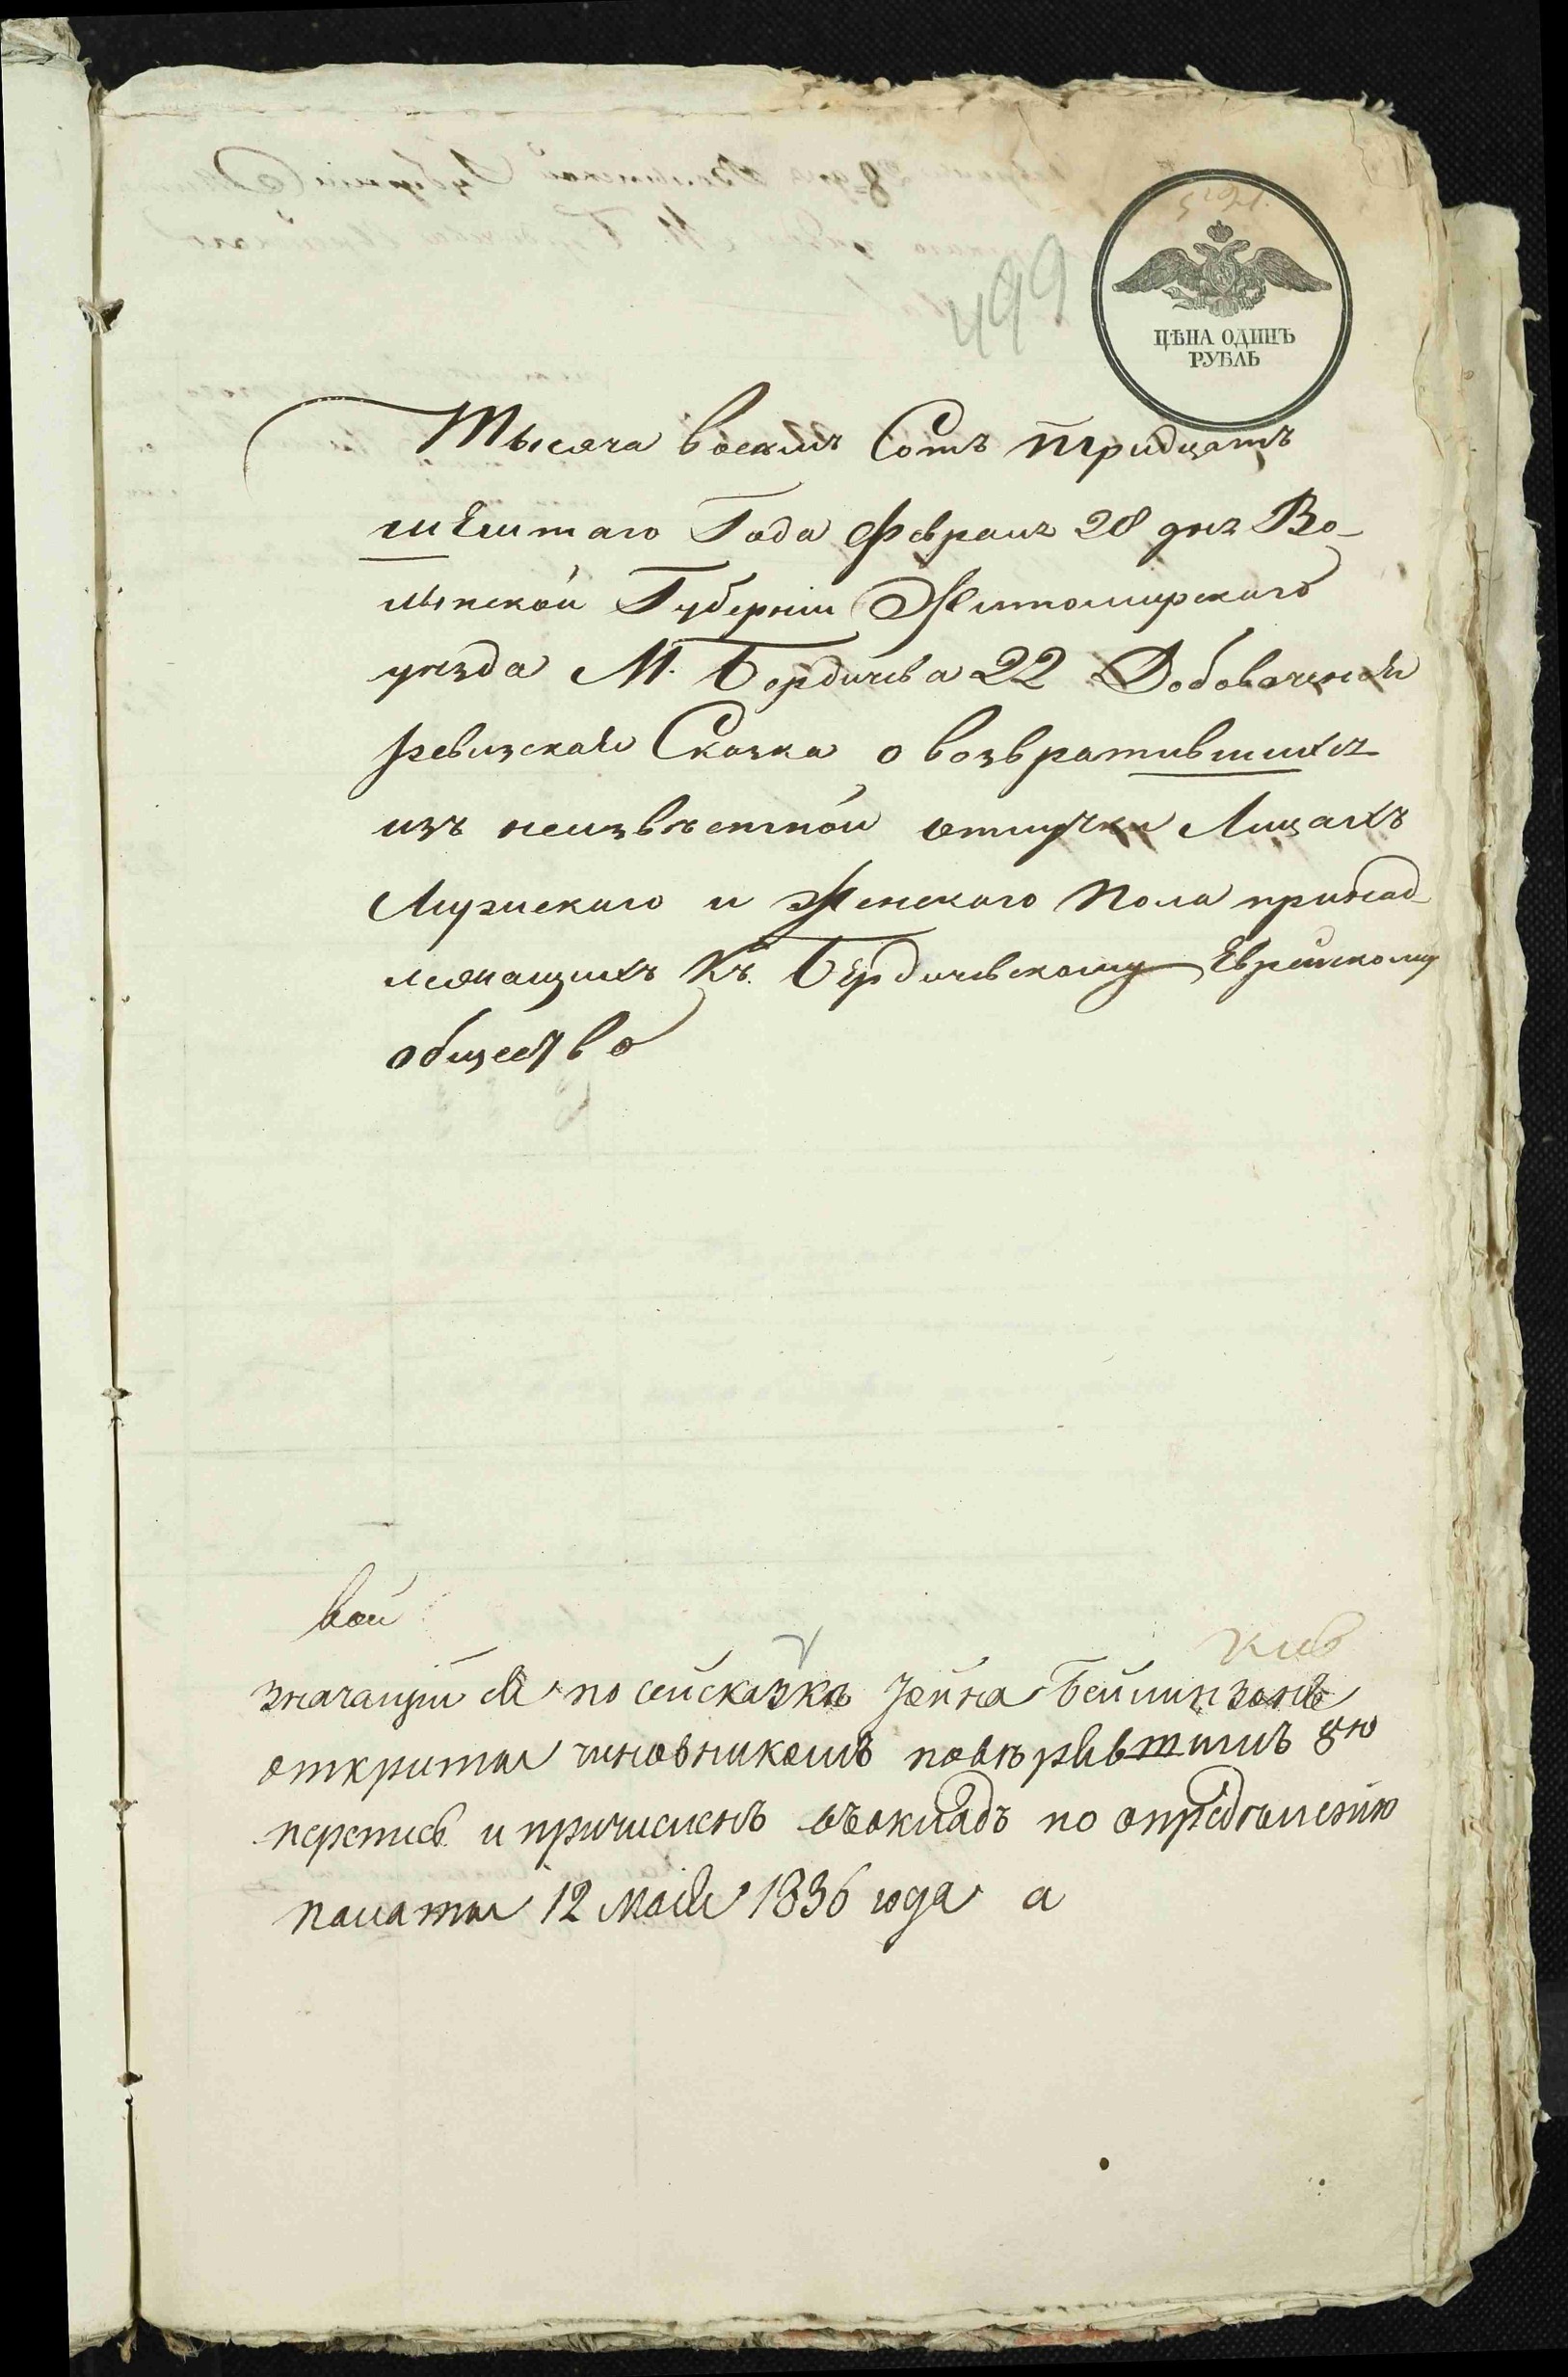 499
ЦѢНА ОДИНЪ
РУБЛЬ
Тысяча восемъ Сотъ тридцать
шестаго Года Февраля 28 дня Во-
лынской Губерніи Житомирского
уѣзда М. Бердичева 22 Добавочная
ревизская Сказка о возвратившихся
изъ неизвѣстной отлучки Лицахъ
Мужискаго и Женскаго Пола принад-
лежащихъ Къ Бердичевскому Еврейскому
общество
вой
значащійся по сей сказкѣ Бейминзонъ
открыты чиновникомъ повѣрявшимъ 8ю
перепись и причисленъ въ окладъ по опредѣленію
палаты 12 мая 1836 года а